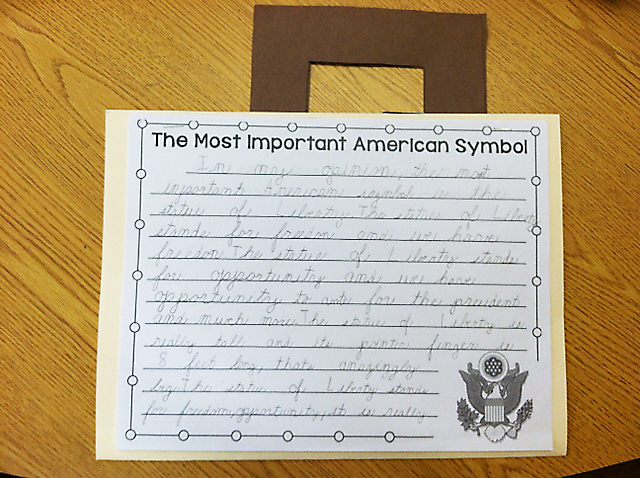 The Most Important American Symbol
In my opinion, the most
important American symbol is the
statue of Liberty. The statue of Liberty
stands for freedom and we have
freedom. The statue of Liberty stands
for opportunity and we have
opportunity to vote for the president
and much more. The statue of Liberty is
really tall and its pointer finger is
8 feet long, thats amazingly
big. The statue of Liberty stands
for freedom, opportunity, it is really